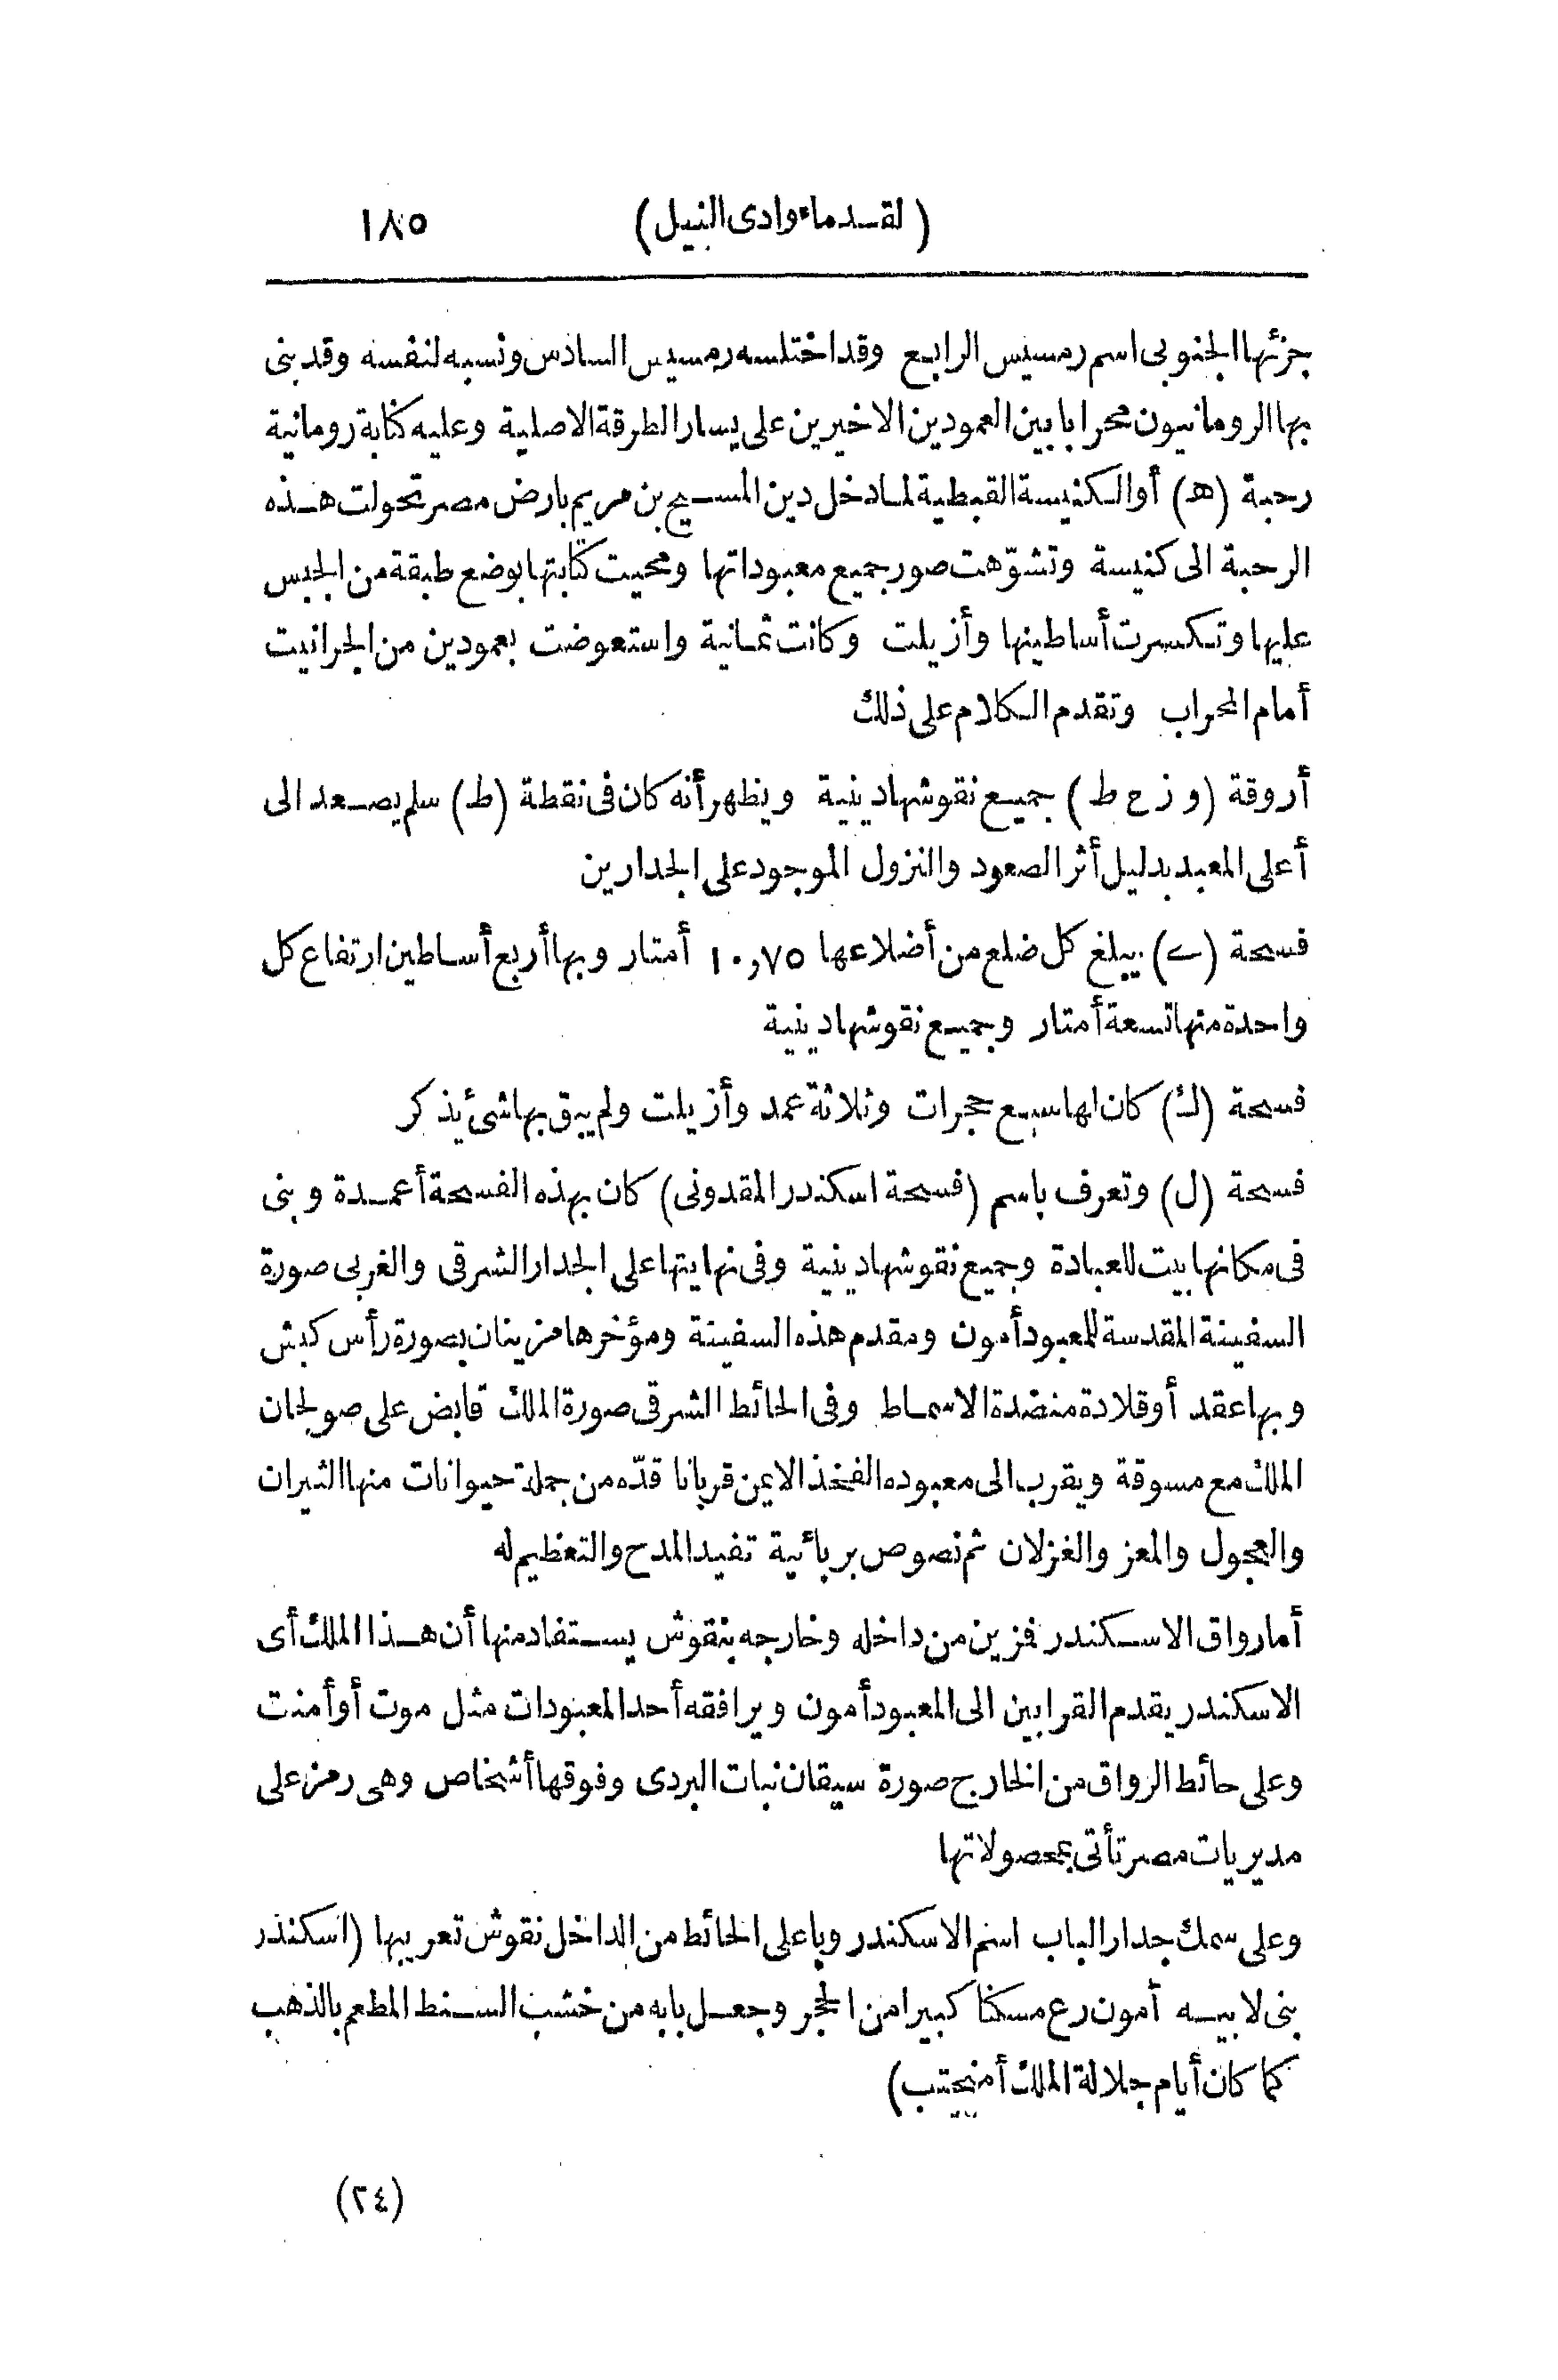 (لقدماء وادى النيل) ١٨٥
جزئها الجنوبى اسم رمسيس الرابع وقد اختلسه رمسيس السادس ونسبه لنفسه وقد بنى
بها الرومانيون محرابا بين العمودين الاخيرين على يسار الطرقة الاصلية وعليه كتابة رومانية
رحبة (هـ) أو الكنيسة القبطية لما دخل دين المسيح بن مريم بارض مصر تحولت هذه
الرحبة الى كنيسة وتشوّهت صور جميع معبوداتها ومحيت كتابتها بوضع طبقة من الجبس
عليها وتكسرت أساطينها وأزيلت وكانت ثمانية واستعوضت بعمودين من الجرانيت
أمام المحراب وتقدم الكلام على ذلك
أروقة (و ز ح ط) جميع نقوشها دينية ويظهر أنه كان فى نقطة (ط) سلم يصعد الى
أعلى المعبد بدليل أثر الصعود والنزول الموجود على الجدارين
فسحة (ى) يبلغ كل ضلع من أضلاعها ١٠,٧٥ أمتار وبها أربع أساطين ارتفاع كل
واحدة منها تسعة أمتار وجميع نقوشها دينية
فسحة (ك) كان لها سبع حجرات وثلاثة عمد وأزيلت ولم يبق بها شئ يذكر
فسحة (ل) وتعرف باسم (فسحة اسكندر المقدونى) كان بهذه الفسحة أعمدة وبنى
فى مكانها بيت للعبادة وجميع نقوشها دينية وفى نهايتها على الجدار الشرقى والغربى صورة
السفينة المقدسة للمعبود أمون ومقدم هذه السفينة ومؤخرها مزينان بصورة رأس كبش
وبها عقد أو قلادة منضدة الاسماط وفى الحائط الشرقى صورة الملك قابض على صولجان
الملك مع مسوقة ويقرب الى معبوده الفخذ الايمن قربانا قدّه من جملة حيوانات منها الثيران
والعجول والمعز والغزلان ثم نصوص بربائية تفيد المدح والتعظيم له
أما رواق الاسكندر فزين من داخله وخارجه بنقوش يستفاد منها أن هذا الملك أى
الاسكندر يقدم القرابين الى المعبود أمون ويرافقه أحد المعبودات مثل موت أو أمنت
وعلى حائط الرواق من الخارج صورة سيقان نبات البردى وفوقها أشخاص وهى رمز على
مديريات مصر تأتى بمحصولاتها
وعلى سمك جدار الباب اسم الاسكندر وباعلى الحائط من الداخل نقوش تعريبها (اسكندر
بنى لابيه أمون رع مسكنا كبيرا من الحجر وجعل بابه من خشب السنط المطعم بالذهب
كما كان أيام جلالة الملك أمنحتب)
(٢٤)